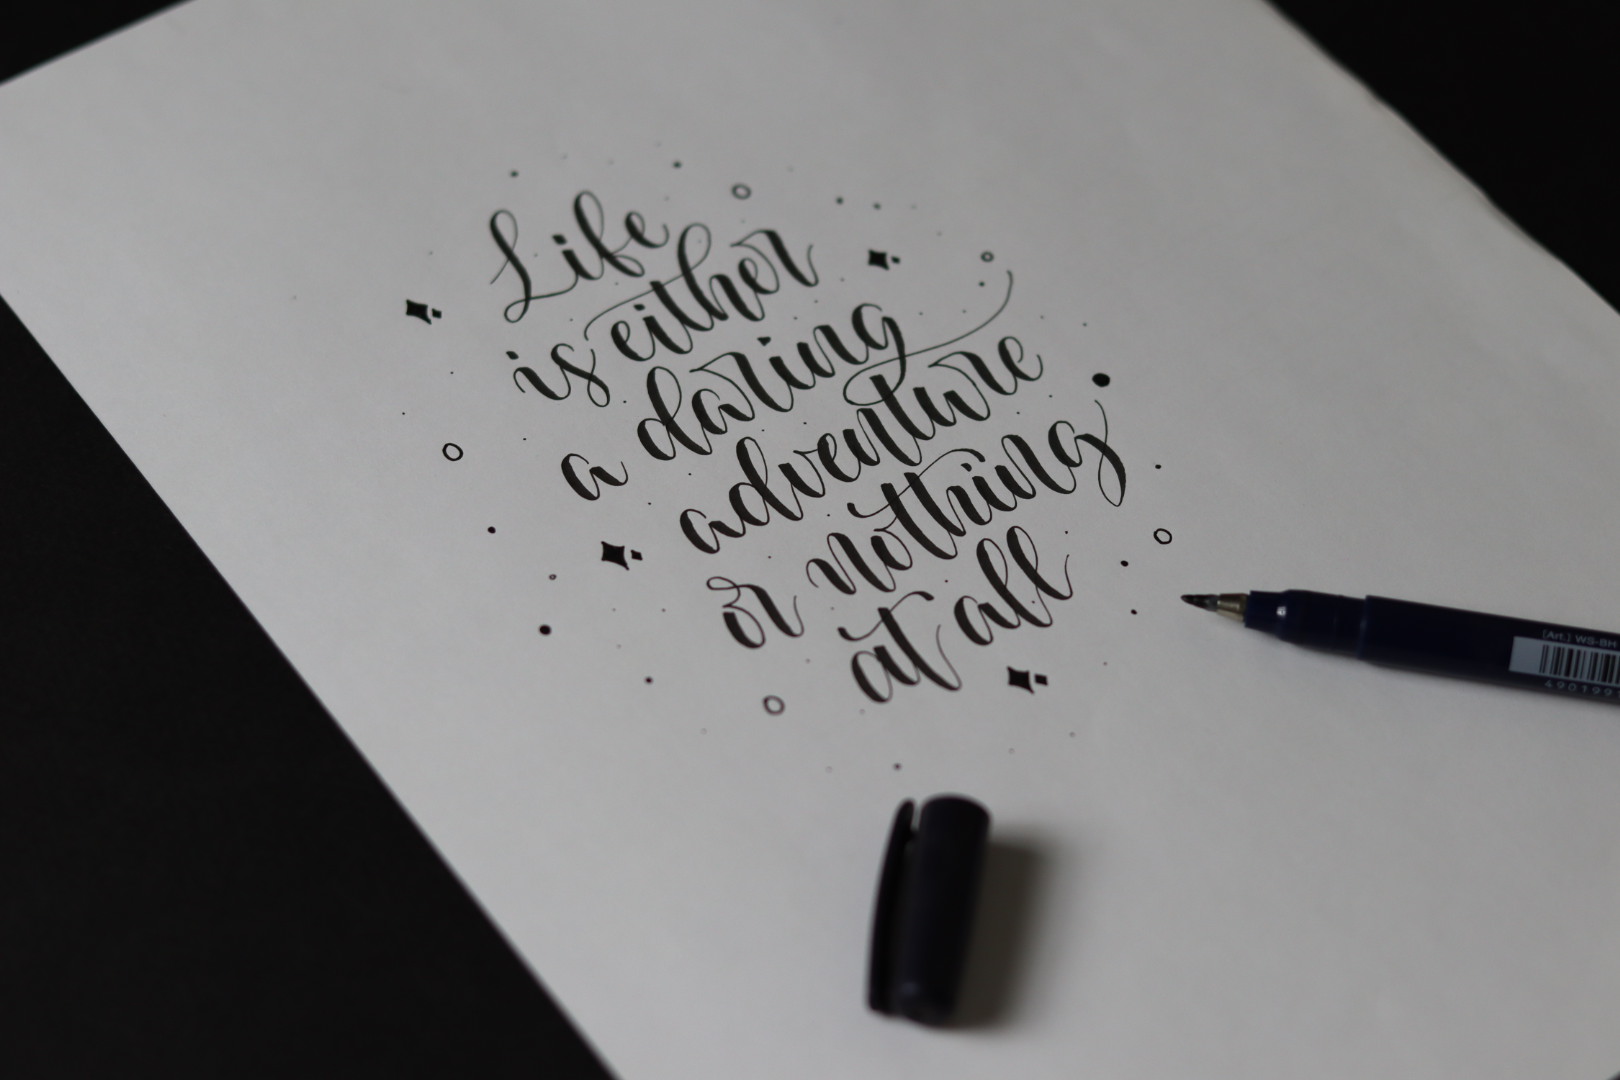 Life
is either
a daring
adventure
or nothing
at all
(Art.) WS-BH
490199